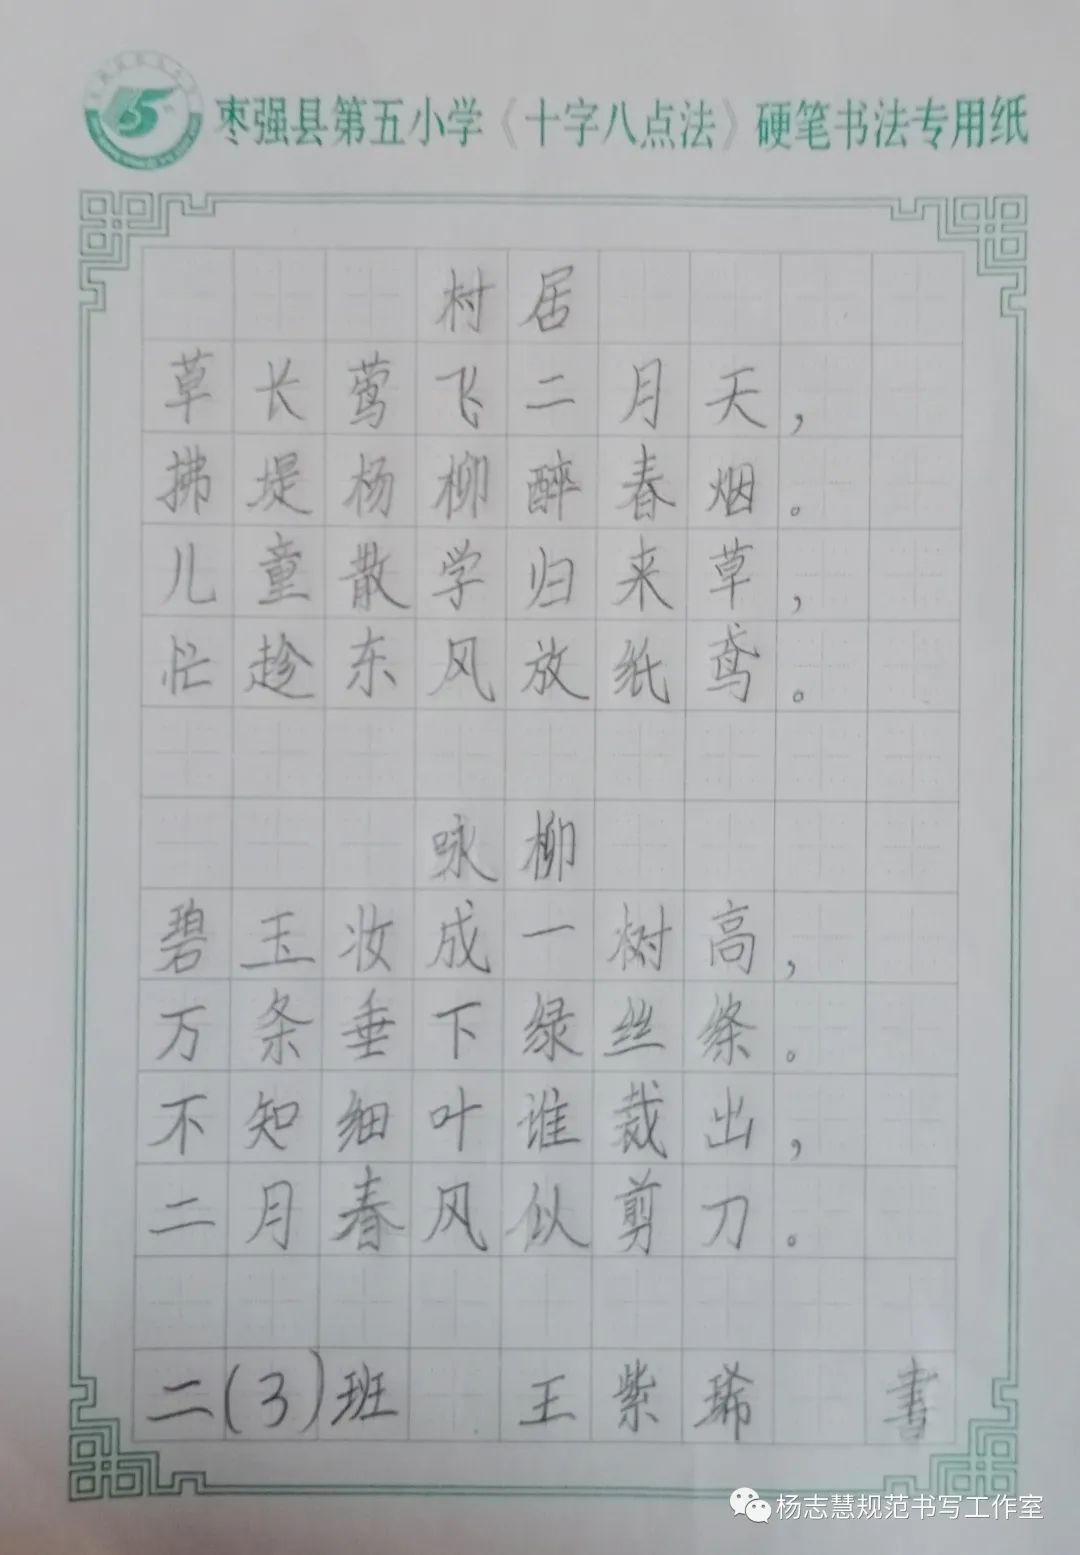 枣强县第五小学《十字八点法》硬笔书法专用纸
村居
草长莺飞二月天，
拂堤杨柳醉春烟。
儿童散学归来草，
忙趁东风放纸鸢。
咏柳
碧玉妆成一树高，
万条垂下绿丝绦。
不知细叶谁裁出，
二月春风似剪刀。
二(3)班 王紫琋 書
杨志慧规范书写工作室